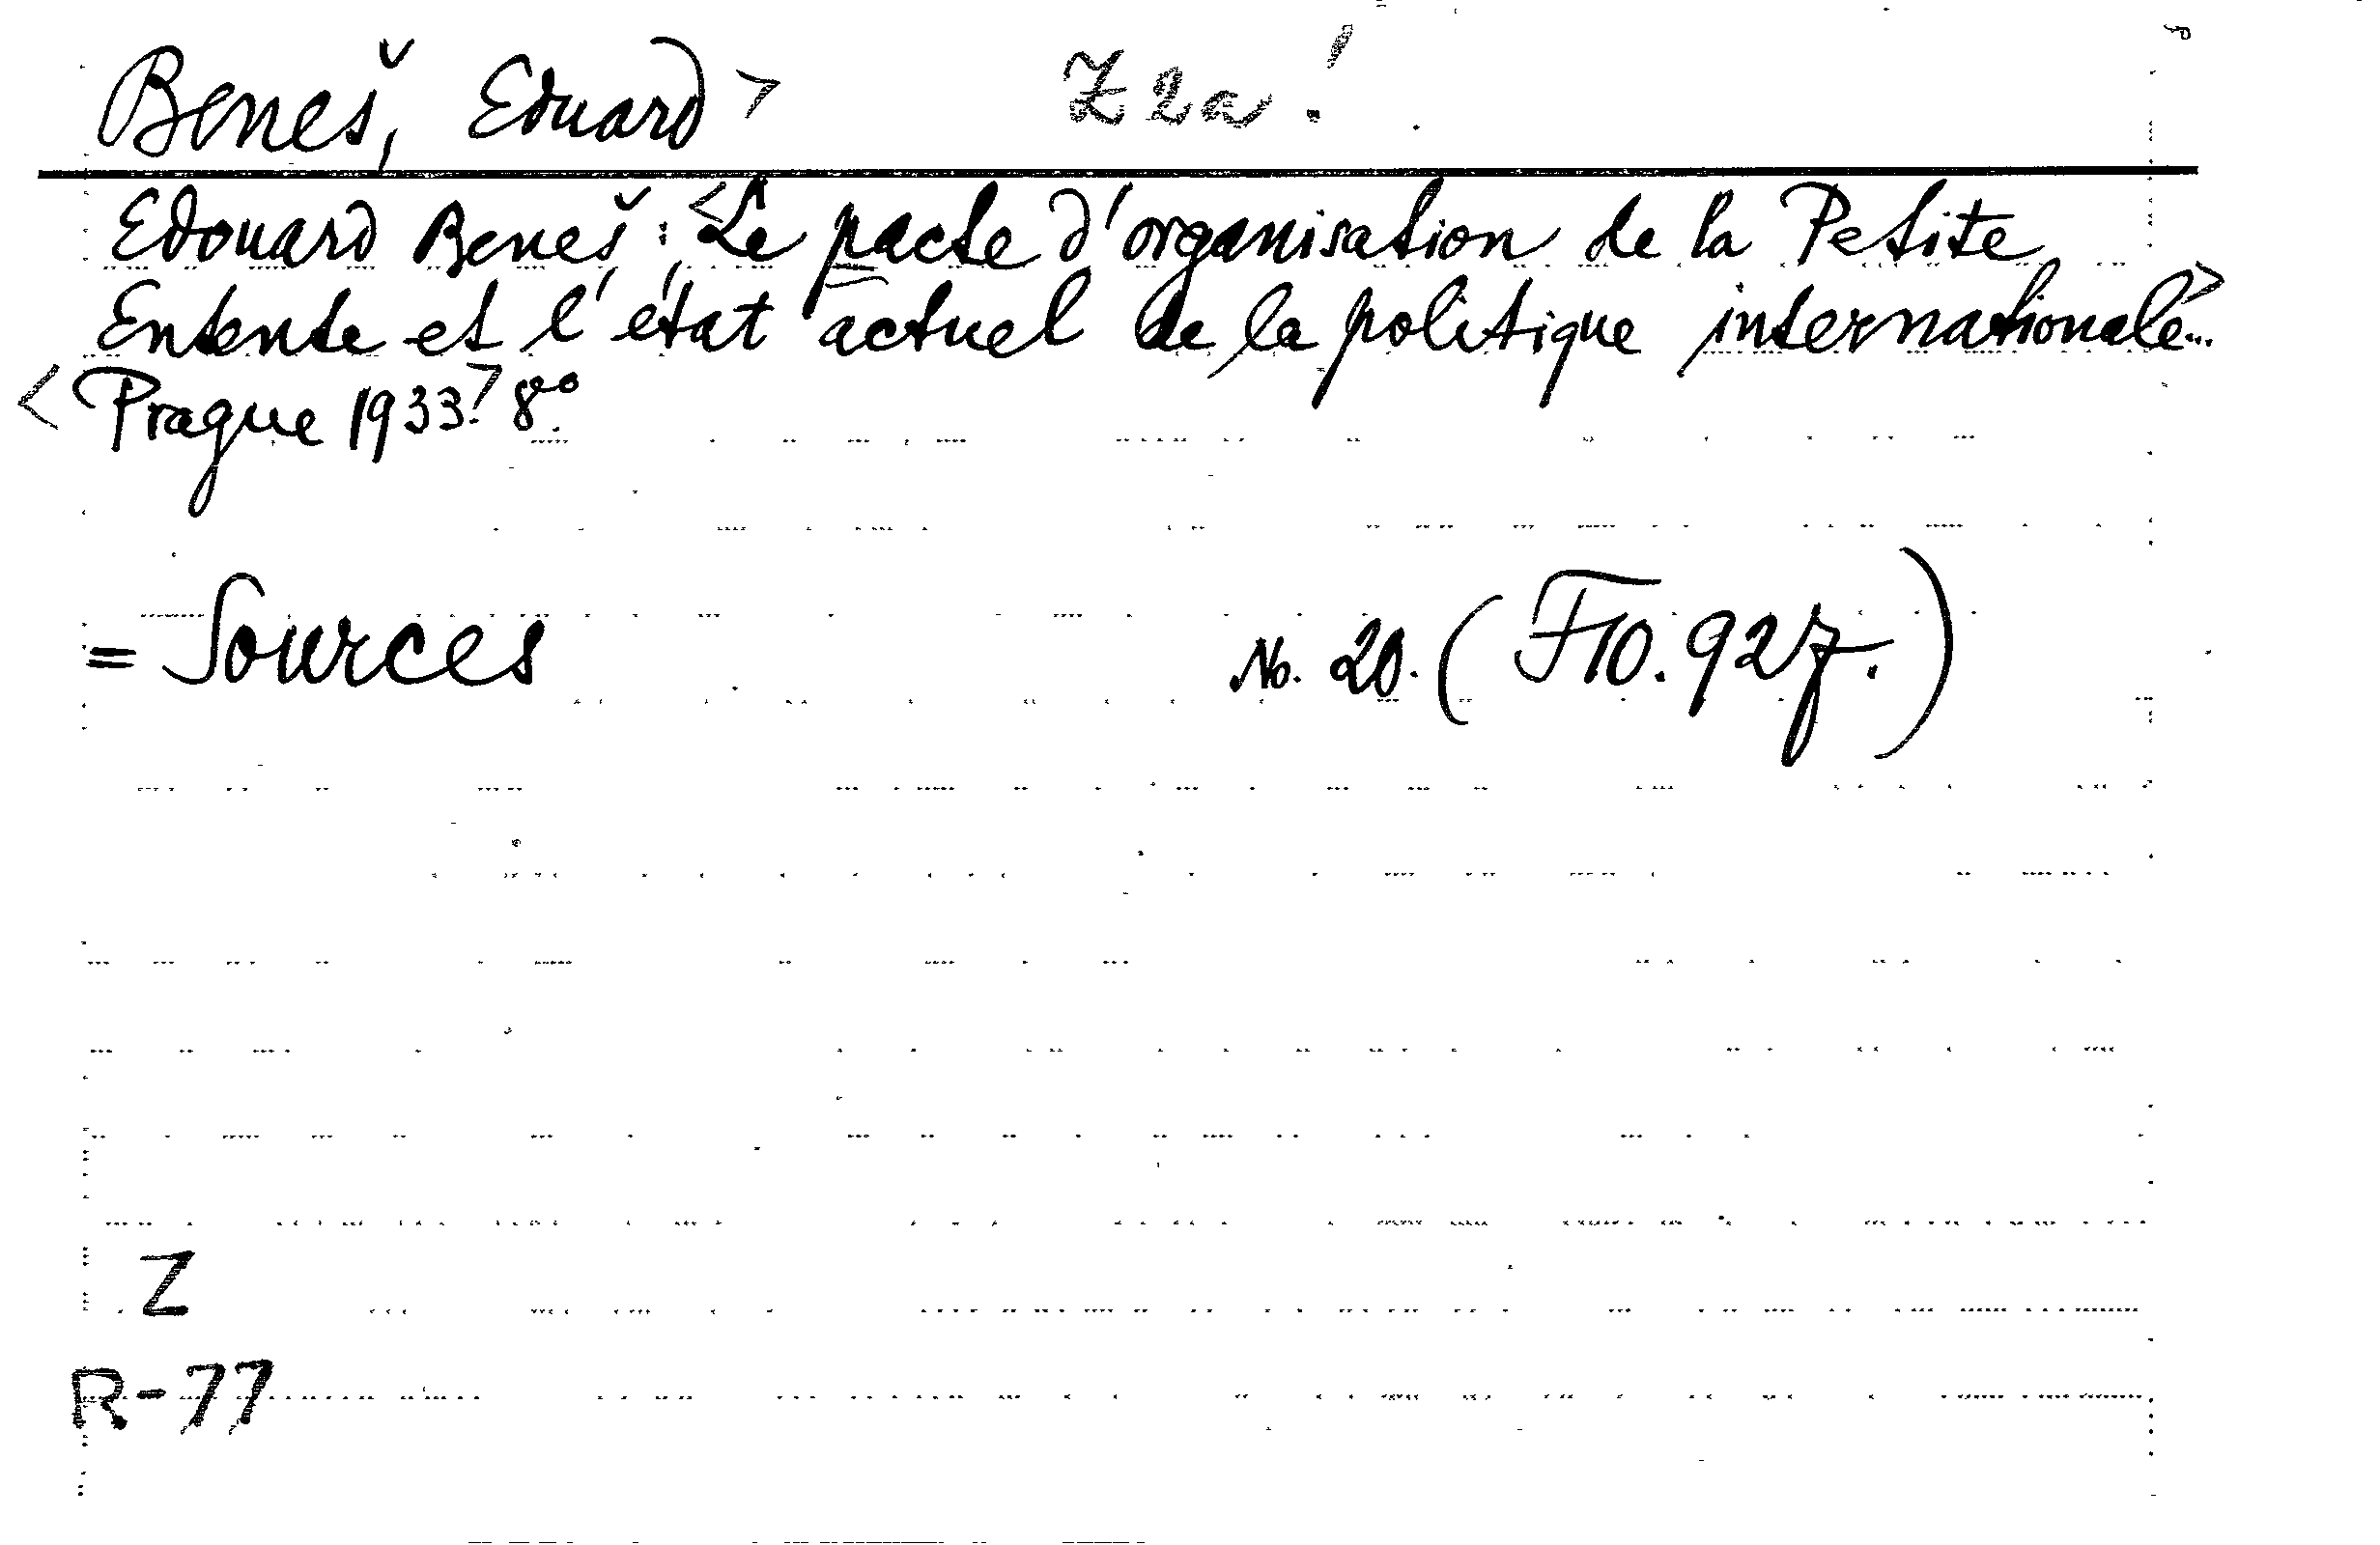 Beneš, Eduard > Z 2a!
Edouard Beneš: <Le pacte d'organisation de la Petite
Entente et l'état actuel de la politique internationale>...
<Prague 1933.> 8°
= Sources No. 20. (F10.927.)
Z
R-77